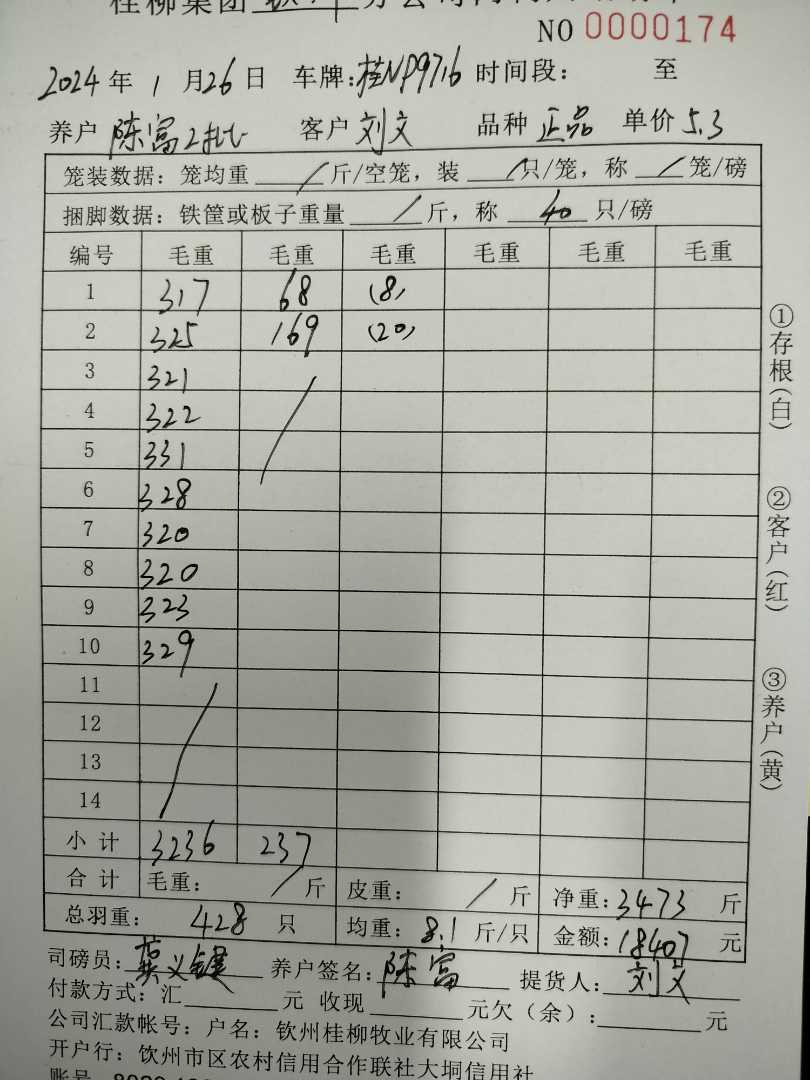 桂柳集团
NO 0000174
2024 年 1 月 26 日 车牌:桂NP9716 时间段: 至
养户 陈富2批 客户 刘文 品种 正品 单价 5.3
笼装数据: 笼均重 / 斤/空笼, 装 / 只/笼, 称 / 笼/磅
捆脚数据: 铁筐或板子重量 / 斤, 称 40 只/磅
编号 毛重 毛重 毛重 毛重 毛重 毛重
1 317 68 (8)
2 325 169 (20)
3 321
4 322
5 331
6 328
7 320
8 320
9 323
10 329
11
12
13
14
小计 3236 237
合计 毛重: / 斤 皮重: / 斤 净重: 3473 斤
总羽重: 428 只 均重: 8.1 斤/只 金额: 18407 元
司磅员: 义键 养户签名: 陈富 提货人: 刘文
付款方式: 汇 元 收现 元欠(余): 元
公司汇款帐号: 户名: 钦州桂柳牧业有限公司
开户行: 钦州市区农村信用合作联社大垌信用社
账号
①存根(白)
②客户(红)
③养户(黄)